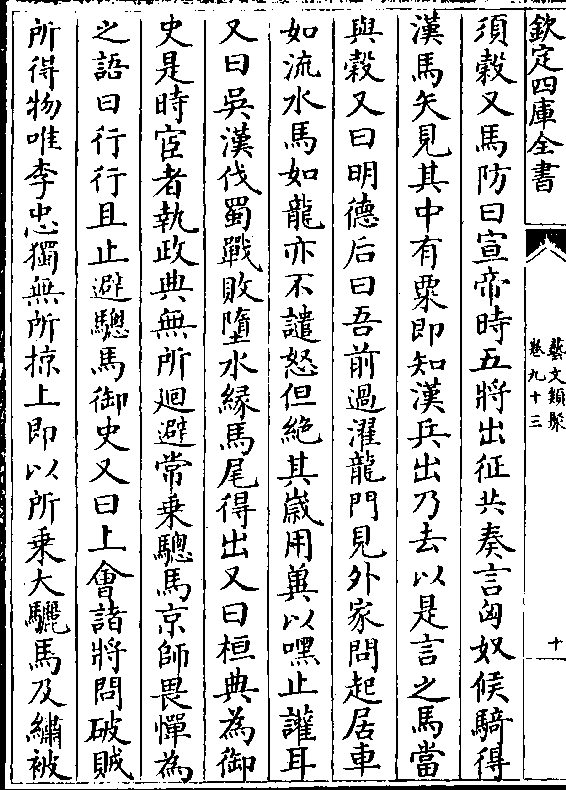 欽定四庫全書
藝文類聚
卷九十三
十
須穀又馬防曰宣帝時五將出征共奏言匈奴候騎得
漢馬矢見其中有粟即知漢兵出乃去以是言之馬當
與穀又曰明德后曰吾前過濯龍門見外家問起居車
如流水馬如龍亦不譴怒但絶其嵗用冀以嘿止讙耳
又曰吳漢伐蜀戰敗墮水縁馬尾得出又曰桓典為御
史是時宦者執政典無所迴避常乗驄馬京師畏憚為
之語曰行行且止避驄馬御史又曰上會諸將問破賊
所得物唯李忠獨無所掠上即以所乗大驪馬及繡被